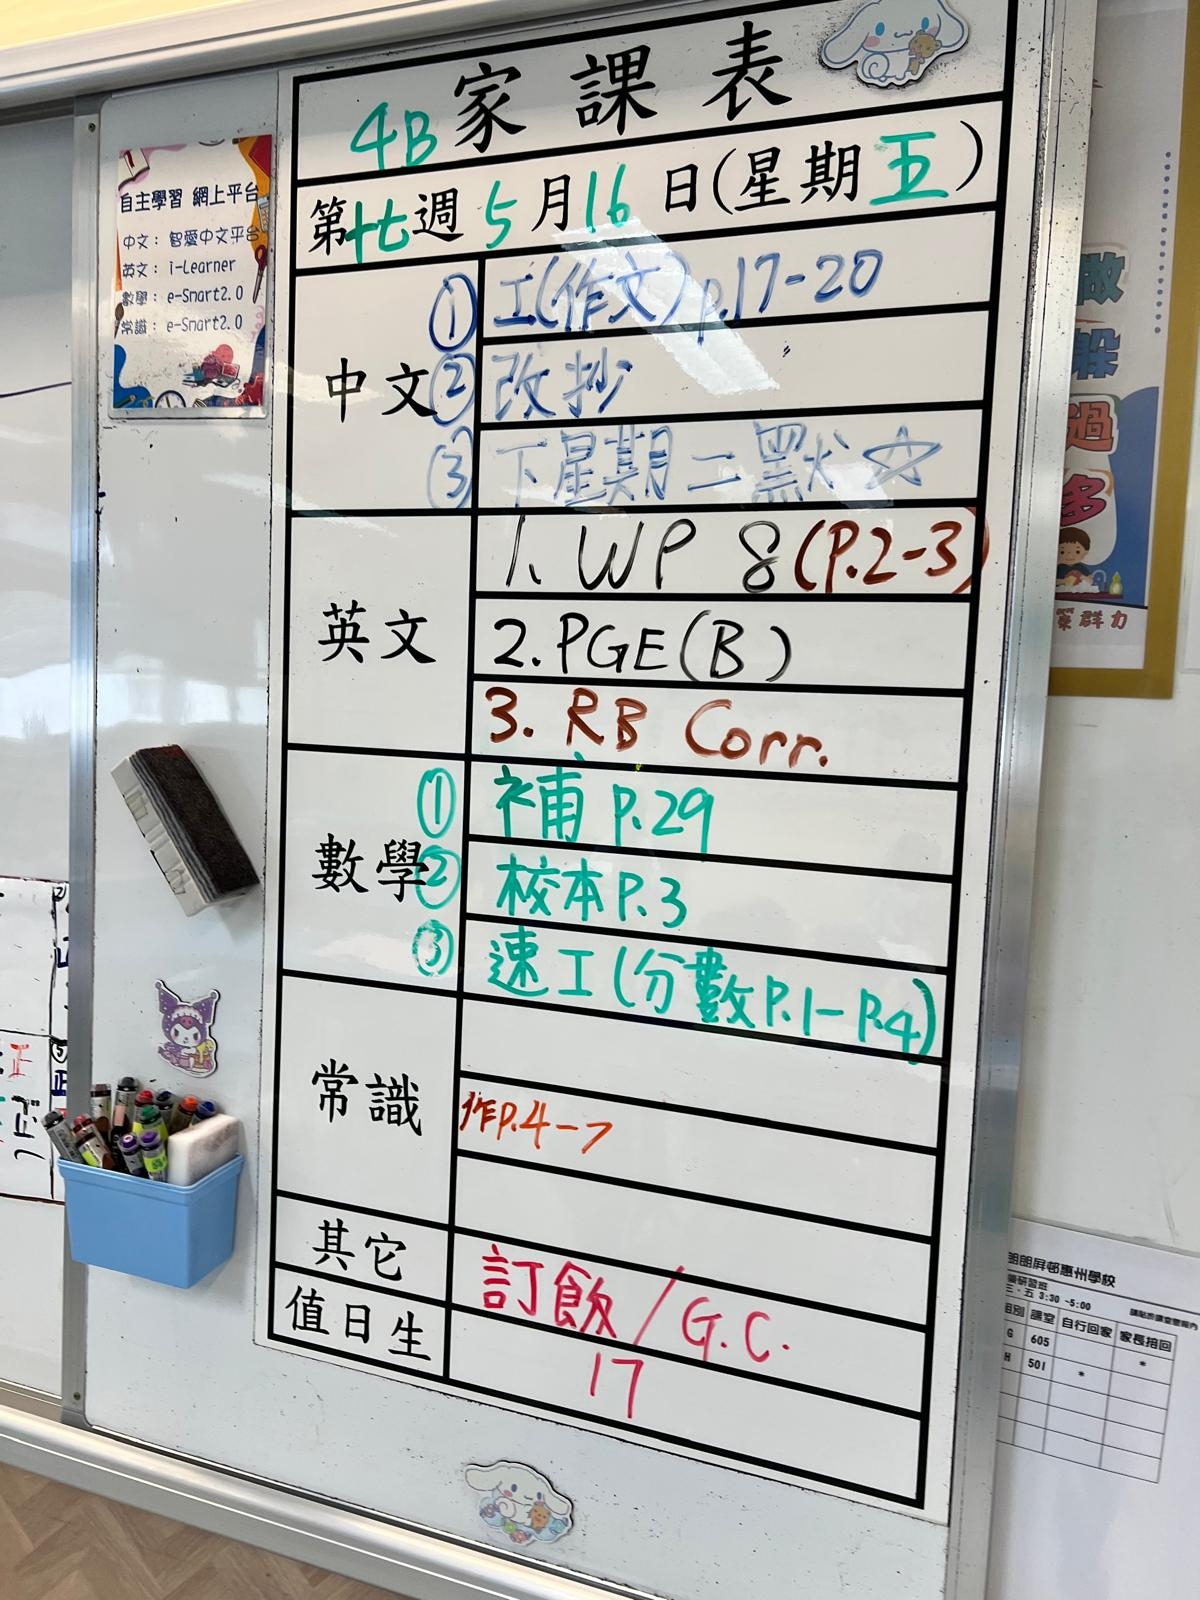 4B家課表
第十七週 5月16日(星期五)
中文
① 工(作文)p.17-20
② 改抄
③ 下星期二默☆
英文
1. WP 8(P.2-3)
2. PGE(B)
3. RB Corr.
數學
① 補 P.29
② 校本P.3
③ 速工(分數P.1-P.4)
常識
作P.4-7
其它
訂飯/G.C.
值日生
17
自主學習 網上平台
中文: 智愛中文平台
英文: i-Learner
數學: e-Smart2.0
常識: e-Smart2.0
做
躲
過
多
群力
朗屏邨惠州學校
研習班
三、五 3:30 -5:00
組別 課室 自行回家 家長接回
G 605 *
H 501 *